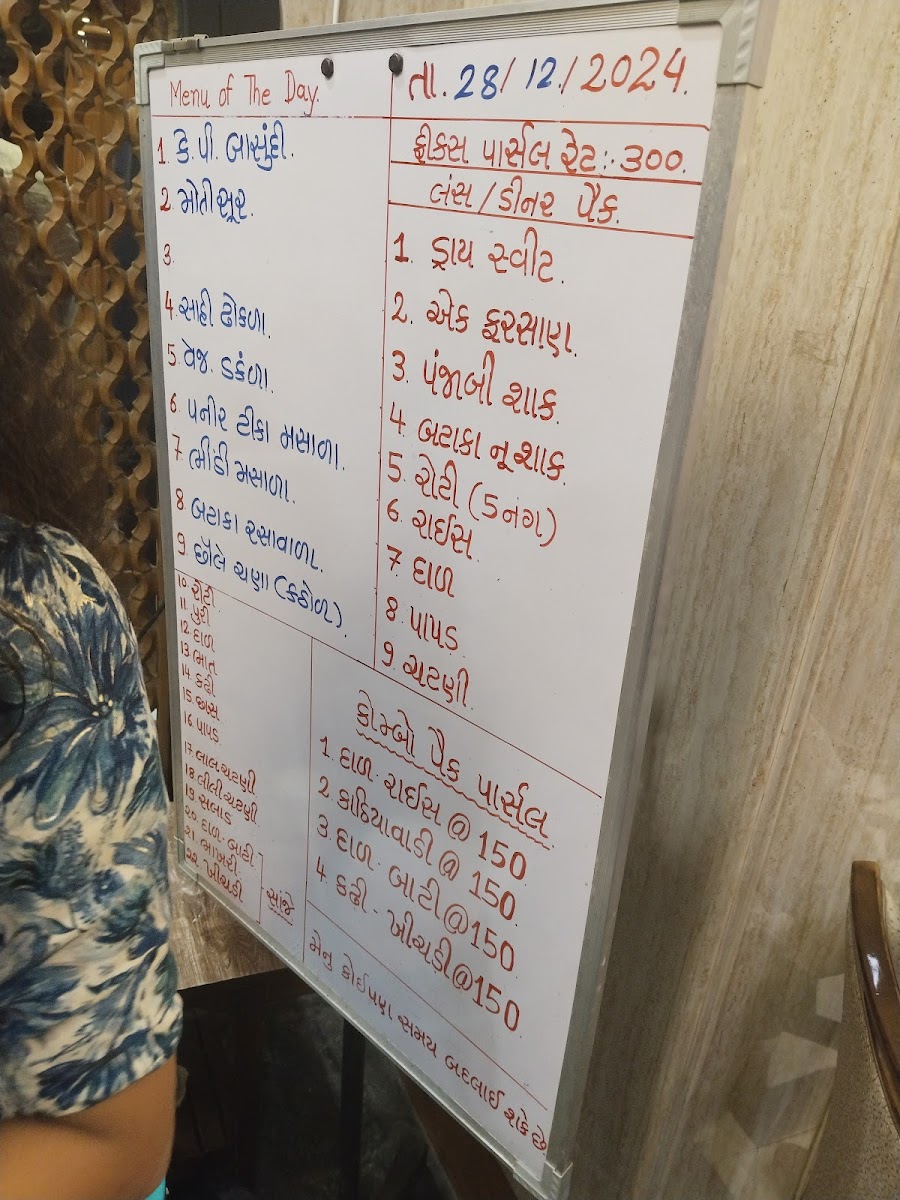 Menu of The Day.
1. કે.પી. બાસુંદી.
2. મોતીસૂર.
3.
4. સાહી ઢોકળા.
5. વેજ. ડકંળા.
6. પનીર ટીકા મસાળા.
7 ભીંડી મસાળા.
8. બટાકા રસાવાળા.
9. છોલે ચણા (કઠોળ).
10. રોટી
11. પુરી
12. દાળ
13. ભાત
14. કઢી
15. છાસ
16. પાપડ
17. લાલ ચટણી
18. લીલી ચટણી
19. સલાડ
૨૦. દાળ-બાટી
૨૧. ભાખરી
૨૨. ખીચડી
સાંજે
તા. 28/12/2024.
ફીકસ પાર્સલ રેટ:- ૩૦૦.
લંસ / ડીનર પૈક.
1. ડ્રાય સ્વીટ.
2. એક ફરસાણ.
3. પંજાબી શાક.
4. બટાકા નૂ શાક.
5. રોટી (5નંગ)
6. રાઈસ
7. દાળ
8. પાપડ
9. ચટણી
કોમ્બો પૈક પાર્સલ
1. દાળ- રાઈસ @ 150
2. કાઠિયાવાડી @ 150
3. દાળ- બાટી @ 150
4. કઢી - ખીચડી @ 150
મેનુ કોઈપણ સમય બદલાઈ શકે છે